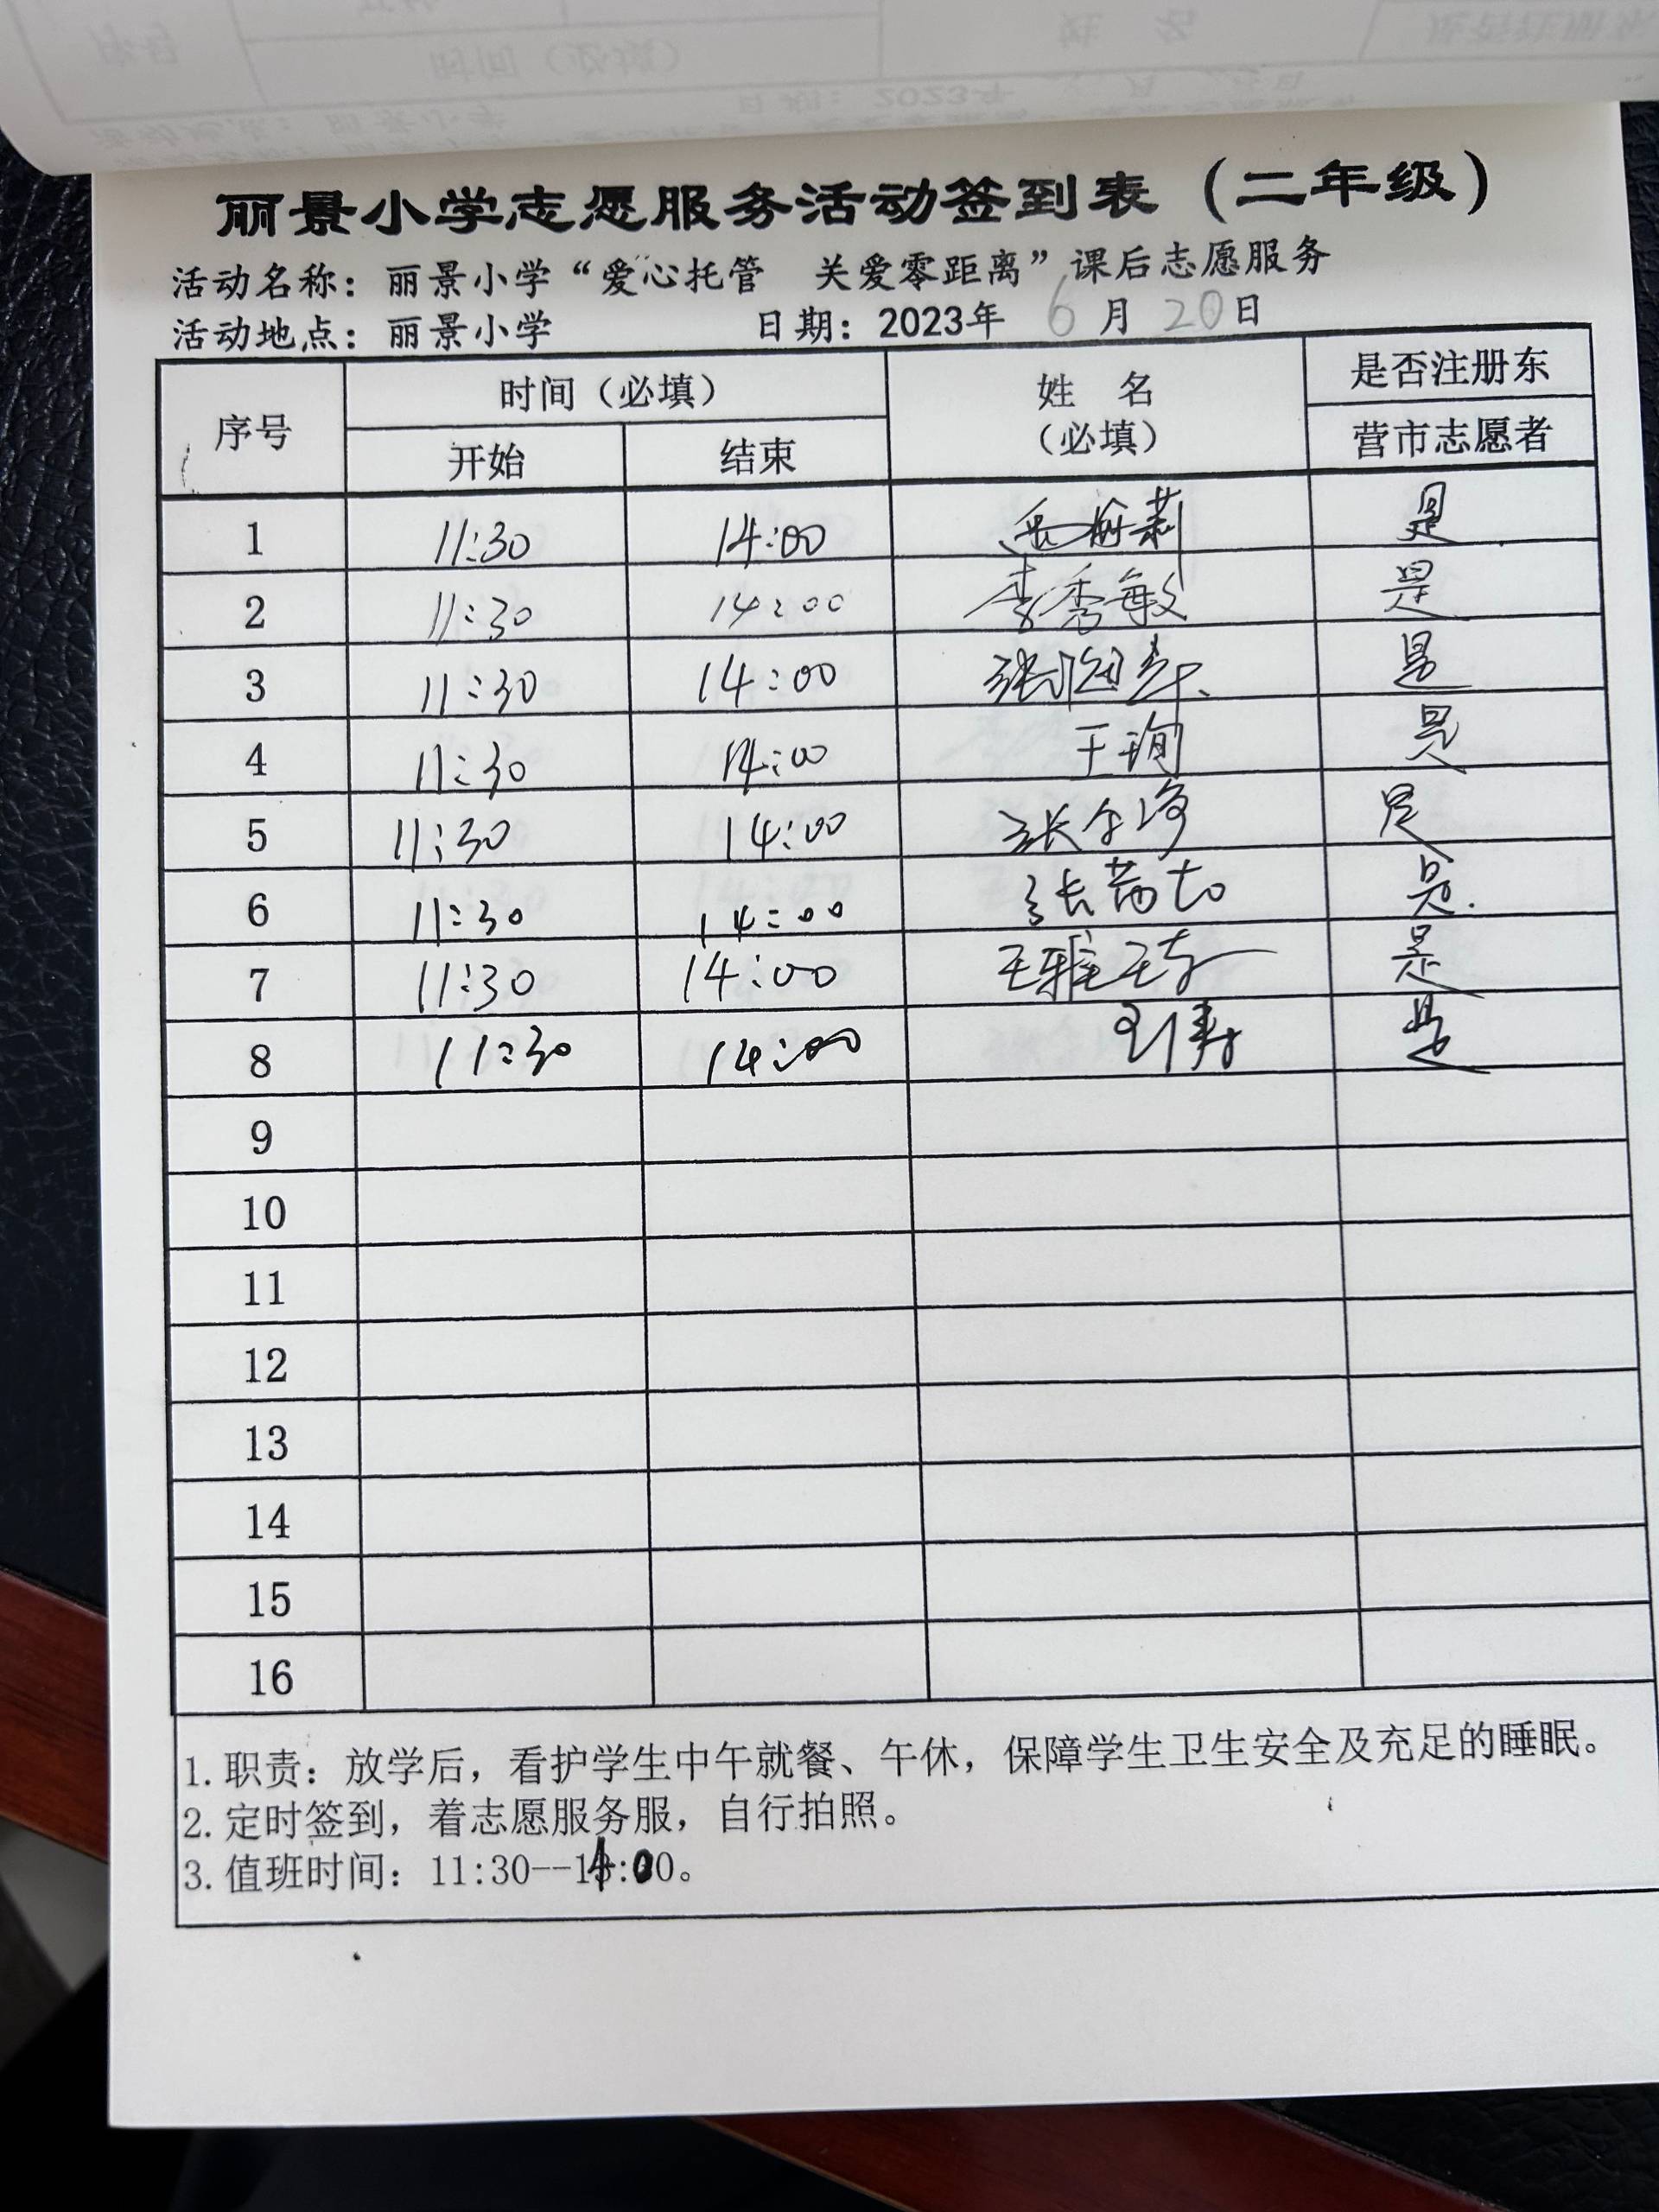 丽景小学志愿服务活动签到表（二年级）
活动名称：丽景小学“爱心托管 关爱零距离”课后志愿服务
活动地点：丽景小学 日期：2023年 6 月 20 日
序号 时间（必填） 姓 名 （必填） 是否注册东
开始 结束 营市志愿者
1 11:30 14:00 是
2 11:30 14:00 李秀敏 是
3 11:30 14:00 是
4 11:30 14:00 王珣 是
5 11:30 14:00 是
6 11:30 14:00 是.
7 11:30 14:00 是
8 11:30 14:00 是
9
10
11
12
13
14
15
16
1. 职责：放学后，看护学生中午就餐、午休，保障学生卫生安全及充足的睡眠。
2. 定时签到，着志愿服务服，自行拍照。
3. 值班时间：11:30--14:00。